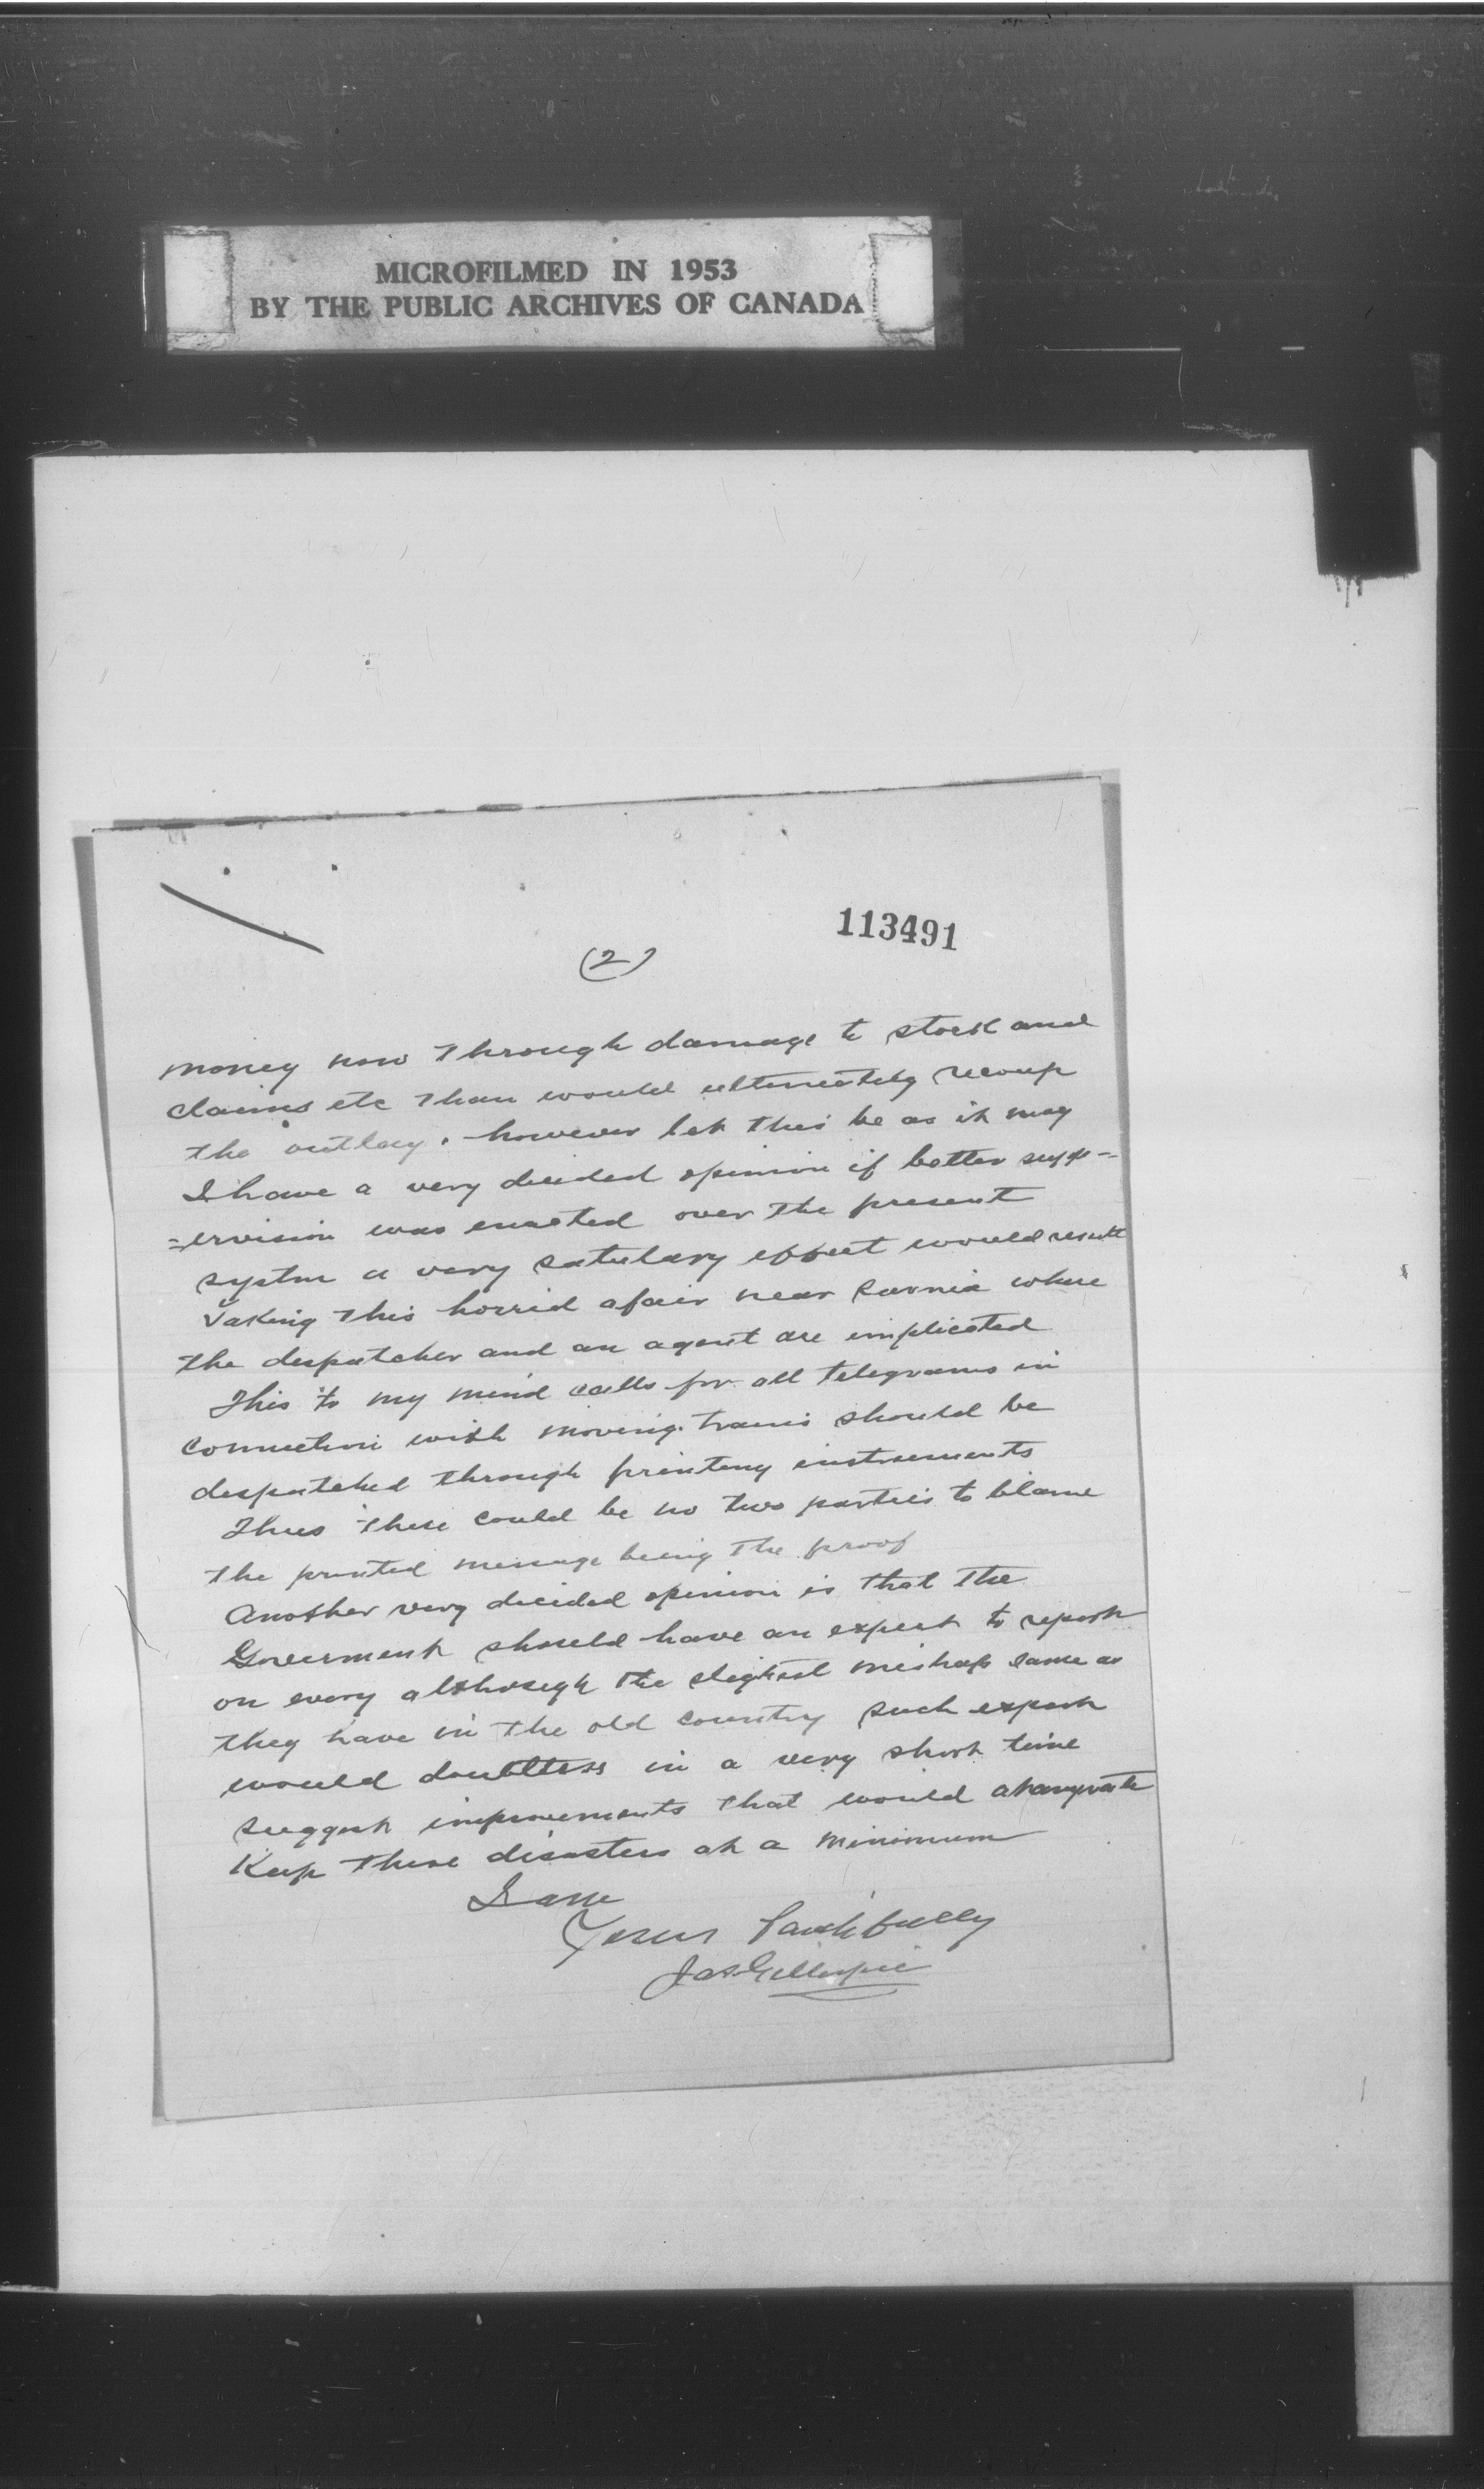 MICROFILMED IN 1953
BY THE PUBLIC ARCHIVES OF CANADA
113491
(2)
money now through damage to stock and
claims etc than would ultimately recoup
the outlay. however let this be as it may
I have a very decided opinion if better sup-
=ervision was enacted over the present
systm a very salutary effect would result
Taking this horrid afair near Sarnia where
the despatcher and an agent are implicated
This to my mind calls for all telegrams in
connection with moving trains should be
despatched through printing instruments
Thus there could be no two parties to blame
the printed message being the proof
Another very decided opinion is that the
Goverment should have an expert to report
on every although the slightest mishap same as
they have in the old country such expert
would doubtless in a very short time
suggest improvements that would at anyrate
Keep these disasters at a minimum
I am
Yours faithfully
Jas Gillespie